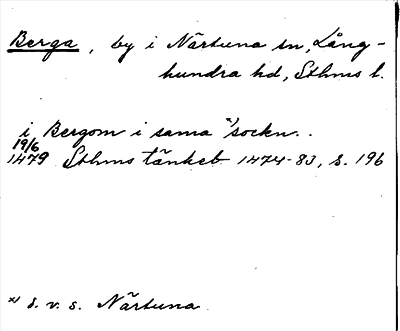 Berga, by i Närtuna sn, Lång-
hundra hd, Sthms l.
i Bergom i sama x) sockn..
19/6
1479 Sthms tänkeb. 1474-83, s. 196
x) d. v. s. Närtuna